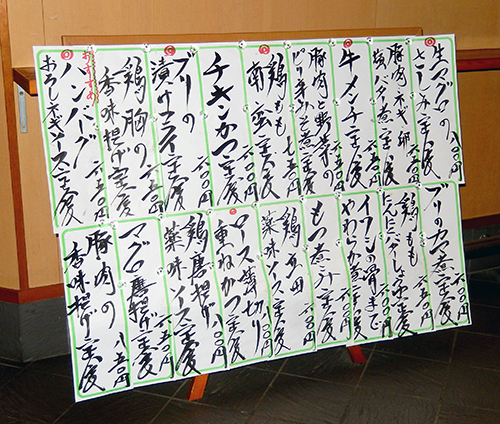 生マグロの 八〇〇円
さしみ定食
豚肉ネギ卵 六五〇円
塩バター煮定食
牛メンチ定食 六五〇円
豚肉と野菜の
ピリ辛みそ煮定食 六〇〇円
鶏もも 七五〇円
南蛮定食
チキンかつ定食 六〇〇円
ブリの 六〇〇円
漬けフライ定食
鶏胸の 六五〇円
香味揚げ定食
おすすめ
ハンバーグ 六五〇円
おろしネギソース定食
ブリのカマ煮定食 六〇〇円
鶏もも 六五〇円
にんにくバター定食
イワシの骨まで
やわらか煮定食 六〇〇円
もつ煮汁定食 六〇〇円
薬味ソース定食
ロース薄切り
重ねかつ定食 六〇〇円
鶏唐揚げ 六〇〇円
薬味ソース定食
マグロ唐揚げ定食 六五〇円
豚肉の 八五〇円
香味揚げ定食